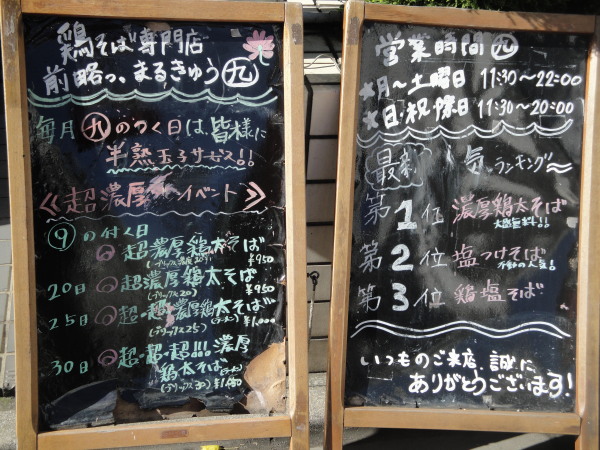 鶏そば専門店
前略っ、まるきゅう九
毎月九のつく日は、皆様に
半熟玉子サービス!!
《超濃厚イベント》
⑨の付く日
超濃厚鶏太そば
(ブリックス濃度20)
¥950
20日 超濃厚鶏太そば
(ブリックス20)
¥950
25日 超・超濃厚鶏太そば
(ブリックス25)
¥1,000
30日 超・超・超!!!濃厚
鶏太そば
(ブリックス30)
営業時間 九
★月〜土曜日 11:30〜22:00
★日・祝祭日 11:30〜20:00
最新 人気ランキング〜
第1位 濃厚鶏太そば
大盛無料!!
第2位 塩つけそば
不動の人気!
第3位 鶏塩そば
いつものご来店、誠に
ありがとうございます!